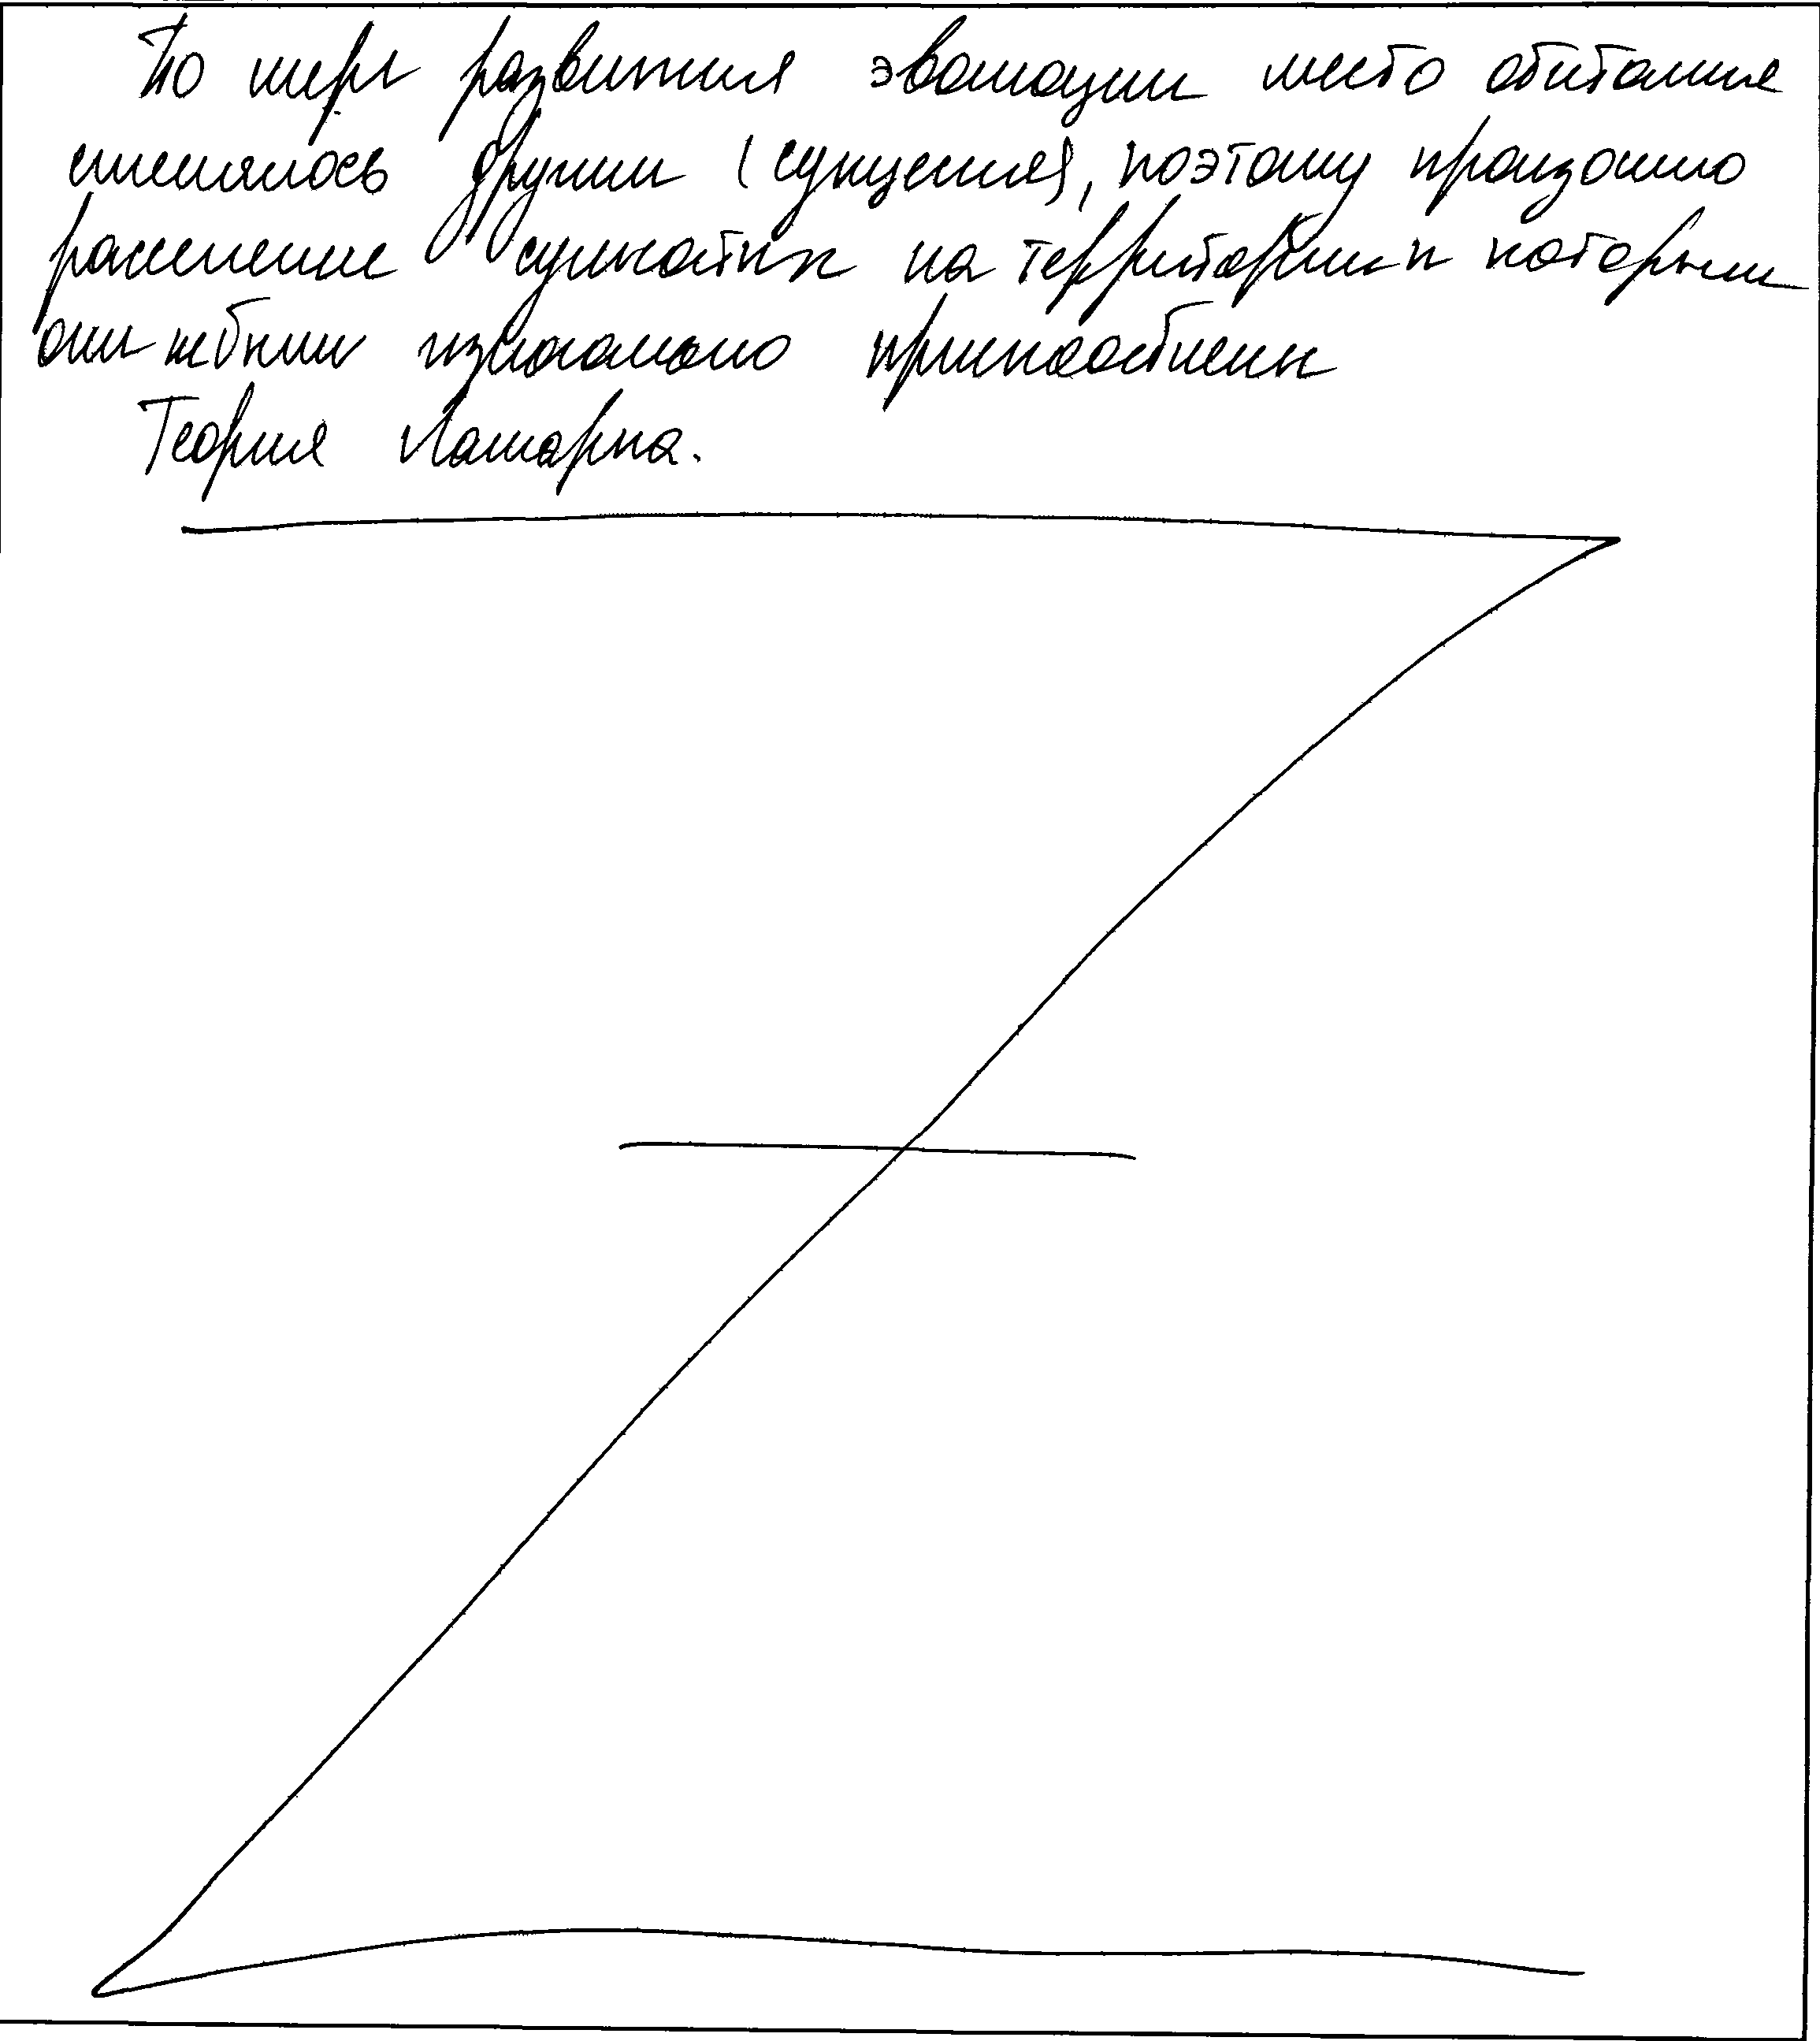 По мере развития эволюции место обитание
сменялось другим (сукцессия), поэтому произошло
расселение сумчатых на территории к которым
они не были изначально приспособлены
Теория Ламарка.